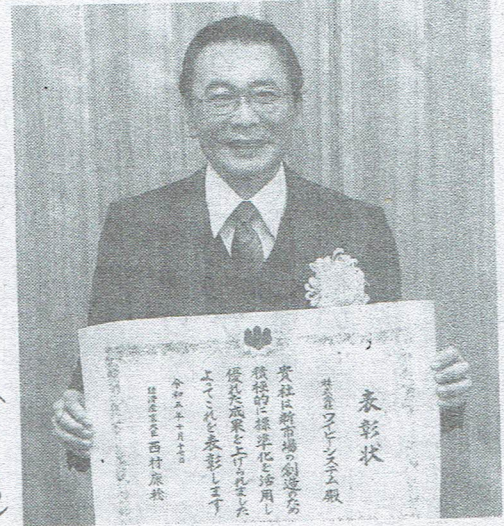 表彰状
株式会社ワイピーシステム殿
貴社は新市場の創造のため
積極的に標準化を活用し
優れた成果を上げられました
よってこれを表彰します
令和五年十月十七日
経済産業大臣 西村康稔